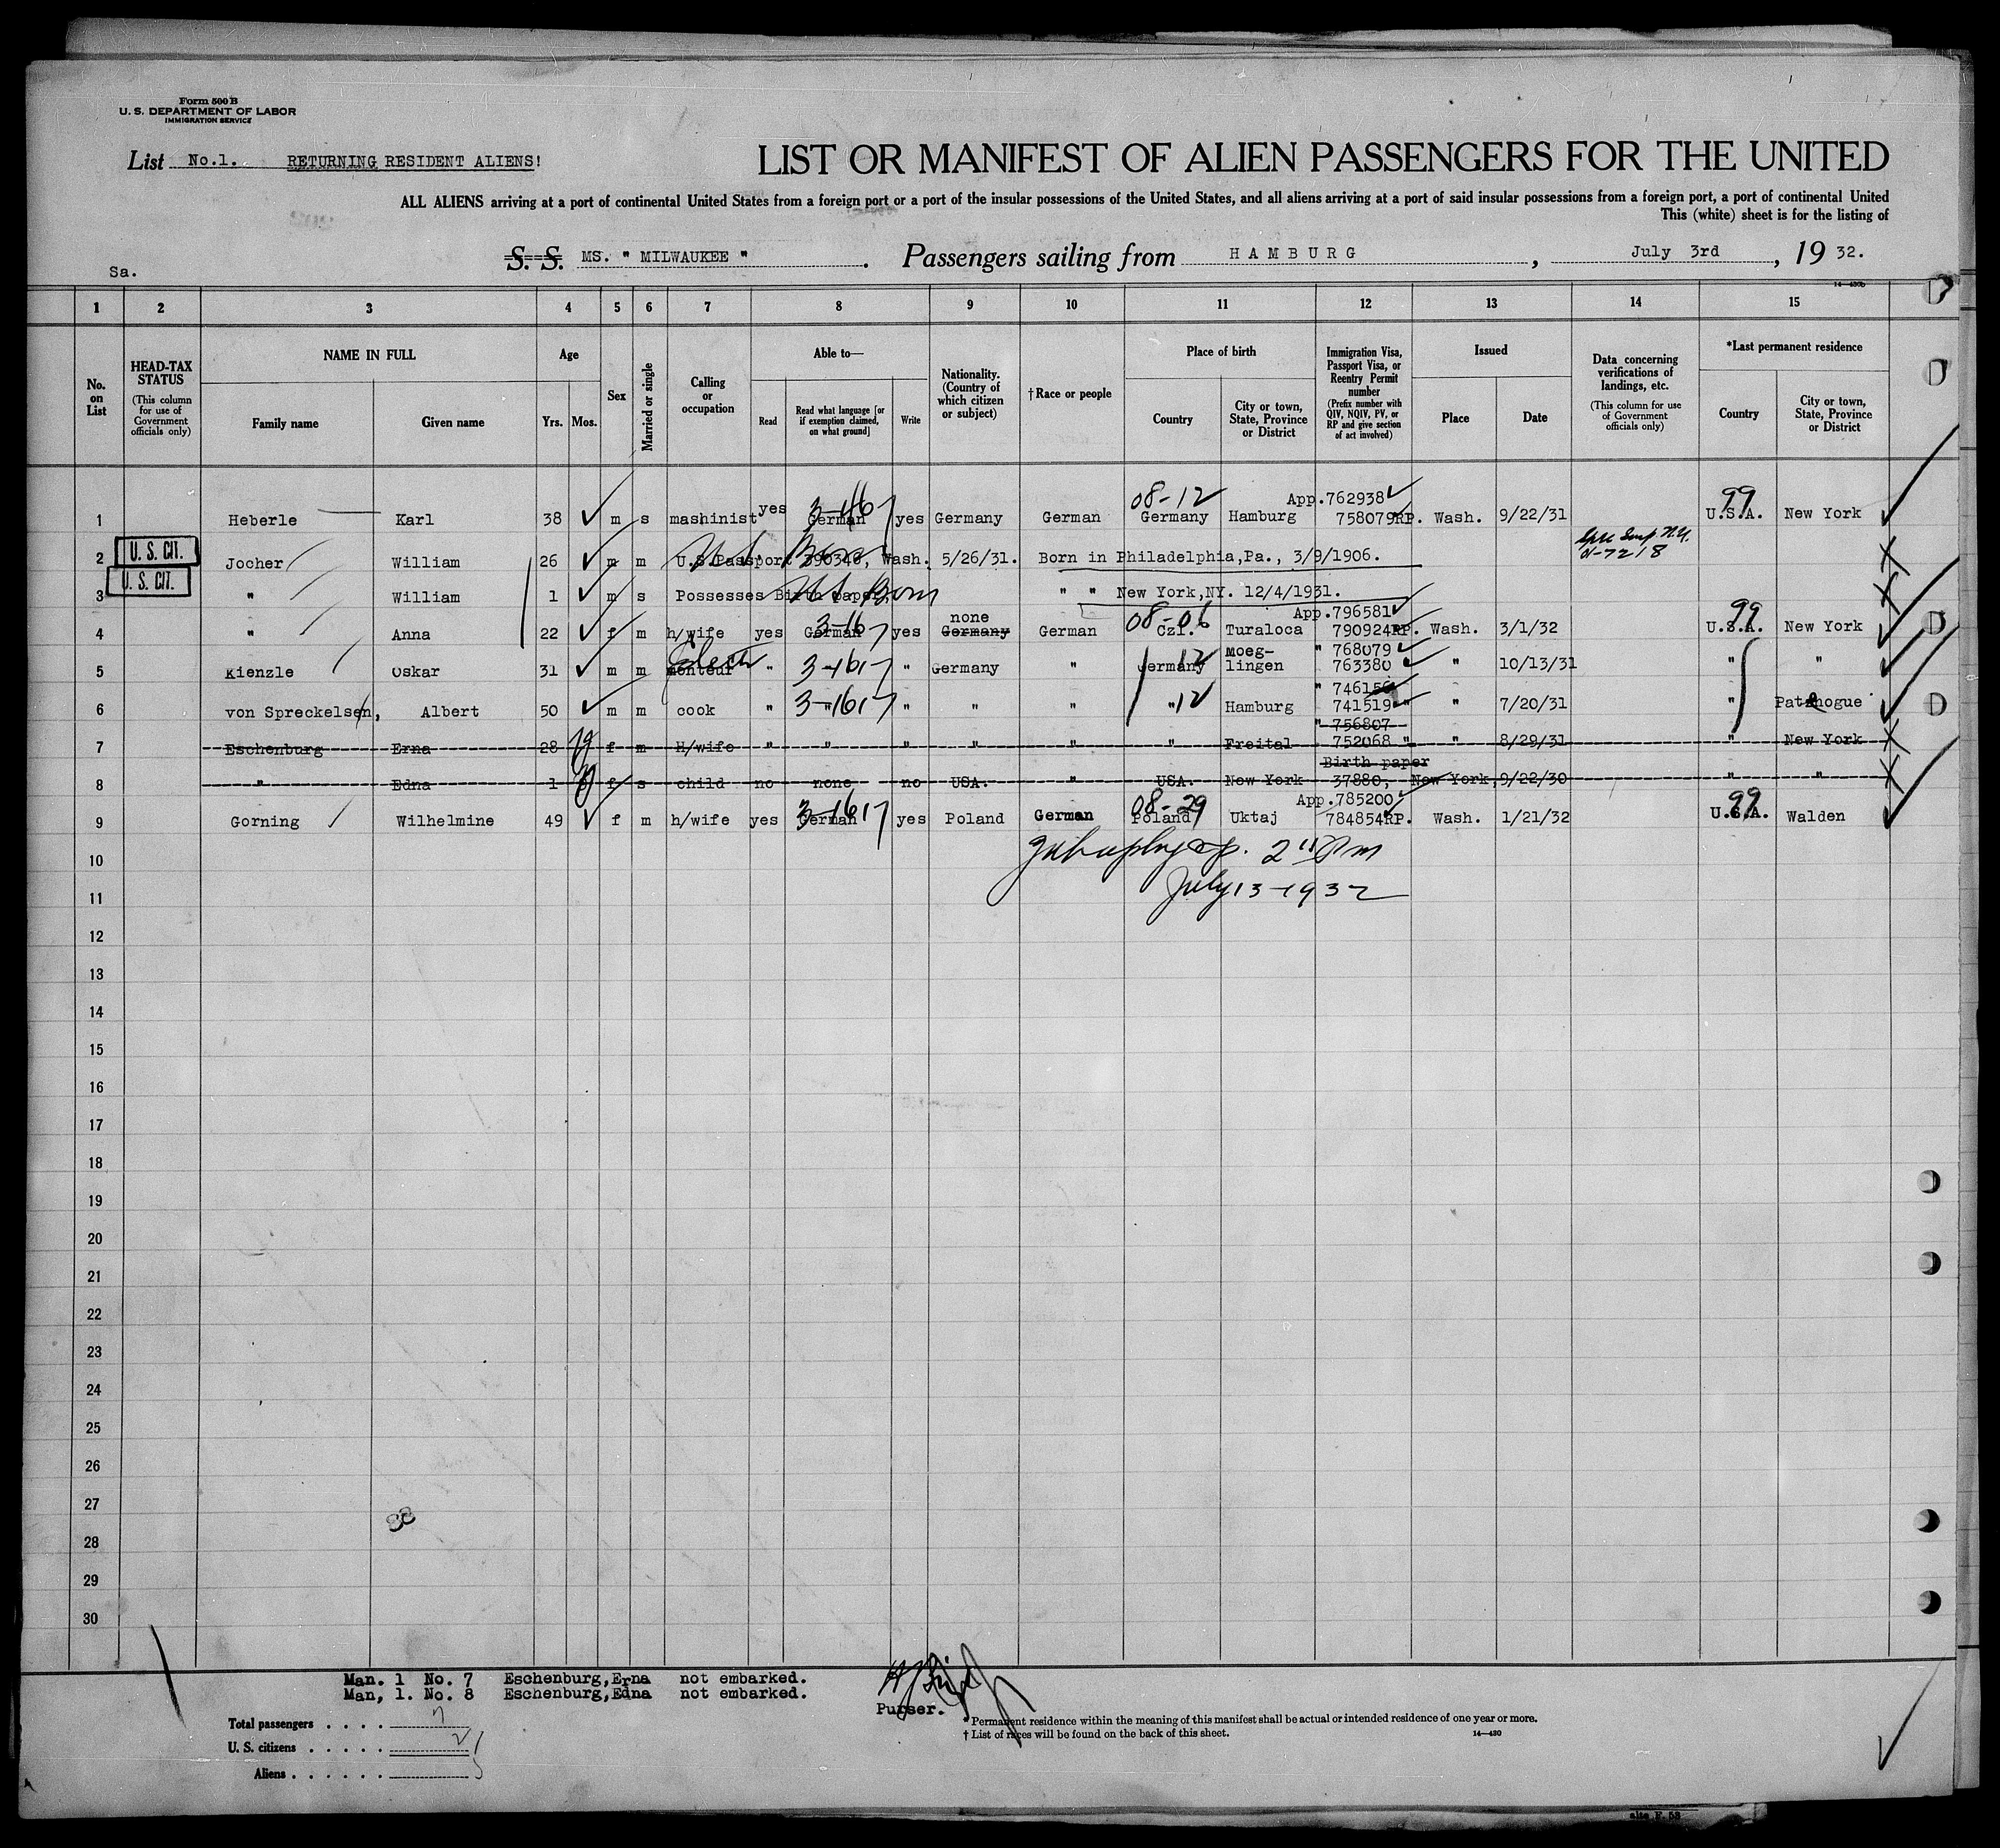 Form 500 B
U. S. DEPARTMENT OF LABOR
IMMIGRATION SERVICE
List No.1. RETURNING RESIDENT ALIENS!
LIST OR MANIFEST OF ALIEN PASSENGERS FOR THE UNITED
ALL ALIENS arriving at a port of continental United States from a foreign port or a port of the insular possessions of the United States, and all aliens arriving at a port of said insular possessions from a foreign port, a port of continental United
This (white) sheet is for the listing of
Sa.
S. S. MS. " MILWAUKEE " . Passengers sailing from HAMBURG , July 3rd , 19 32.
14—430b
1 2 3 4 5 6 7 8 9 10 11 12 13 14 15
No. on List
HEAD-TAX STATUS (This column for use of Government officials only)
NAME IN FULL Family name Given name
Age Yrs. Mos.
Sex
Married or single
Calling or occupation
Able to— Read Read what language [or if exemption claimed, on what ground] Write
Nationality. (Country of which citizen or subject)
†Race or people
Place of birth Country City or town, State, Province or District
Immigration Visa, Passport Visa, or Reentry Permit number (Prefix number with QIV, NQIV, PV, or RP and give section of act involved)
Issued Place Date
Data concerning verifications of landings, etc. (This column for use of Government officials only)
*Last permanent residence Country City or town, State, Province or District
08-12 App.762938 99
1 Heberle Karl 38 m s mashinist yes German 3-16 yes Germany German Germany Hamburg 758079RP. Wash. 9/22/31 U.S.A. New York
U. S. CIT.
2 Jocher William 26 m m U.S.Passport 390348, Wash. 5/26/31. Born in Philadelphia,Pa., 3/9/1906.
U.S. Born
U. S. CIT.
3 " William 1 m s Possesses Birth paper, " " New York,NY. 12/4/1931.
U.S. Born
none 08-06 App.796581 99
4 " Anna 22 f m h/wife yes German 3-16 yes Germany German Czl. Turaloca 790924RP. Wash. 3/1/32 U.S.A. New York
Elect Moeg- " 768079
5 Kienzle Oskar 31 m m monteur " 3-16 " Germany " Germany 12 lingen 763380 " 10/13/31 " "
" 746156
6 von Spreckelsen, Albert 50 m m cook " " 3-16 " " " " 12 Hamburg 741519 " " 7/20/31 " Patchogue
" 756807
7 Eschenburg Erna 28 f m H/wife " " " " " " Freital 752068 " " 8/29/31 " New York
Birth paper
8 " Edna 1 f s child no none no USA. " USA. New York 37880, New York, 9/22/30 " "
08-29 App.785200 99
9 Gorning Wilhelmine 49 f m h/wife yes German 3-16 yes Poland German Poland Uktaj 784854RP. Wash. 1/21/32 U.S.A. Walden
10
July 13-1932
11
12
13
14
15
16
17
18
19
20
21
22
23
24
25
26
27
28
29
30
Man. 1 No. 7 Eschenburg,Erna not embarked.
Man, 1. No. 8 Eschenburg,Edna not embarked.
Purser.
Total passengers . . . . 7
U. S. citizens . . . . . 2
Aliens . . . . . . 5
* Permanent residence within the meaning of this manifest shall be actual or intended residence of one year or more.
† List of races will be found on the back of this sheet.
14—430